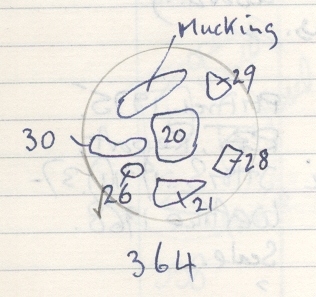 Mucking
29
30
20
28
26
21
364